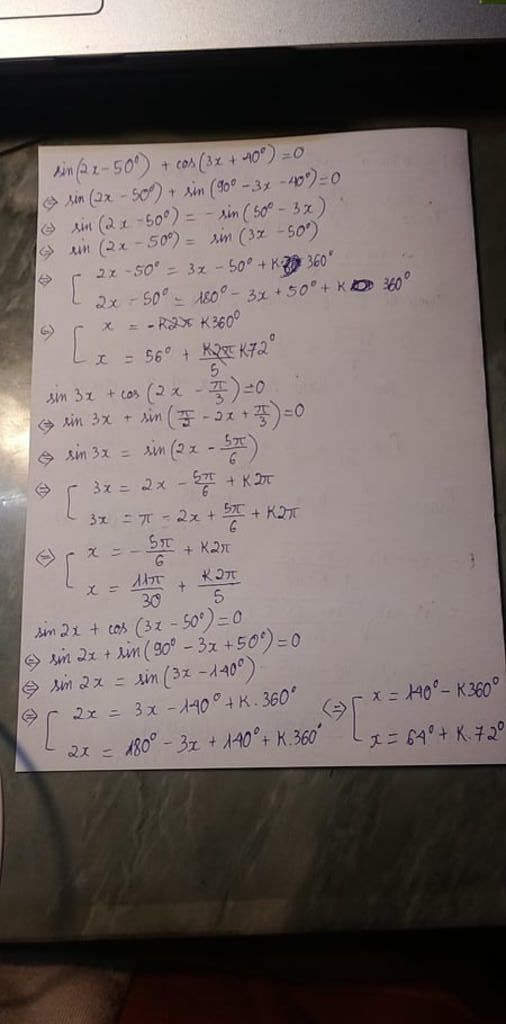 sin(2x-50°) + cos(3x+40°)=0
⇔ sin(2x-50°) + sin(90°-3x-40°)=0
⇔ sin(2x-50°) = -sin(50°-3x)
⇔ sin(2x-50°) = sin(3x-50°)
⇔ [ 2x-50° = 3x-50°+K 360°
2x-50° = 180°-3x+50°+K 360°
⇔ [ x = -K2π K360°
x = 56° + K2π/5 K72°
sin3x + cos(2x - π/3)=0
⇔ sin3x + sin(π/2 - 2x + π/3)=0
⇔ sin3x = sin(2x - 5π/6)
⇔ [ 3x = 2x - 5π/6 + K2π
3x = π - 2x + 5π/6 + K2π
⇔ [ x = -5π/6 + K2π
x = 11π/30 + K2π/5
sin2x + cos(3x-50°)=0
⇔ sin2x + sin(90°-3x+50°)=0
⇔ sin2x = sin(3x-140°)
⇔ [ 2x = 3x-140°+K.360° ⇔ [ x = 140°-K360°
2x = 180°-3x+140°+K.360° x = 64°+K.72°